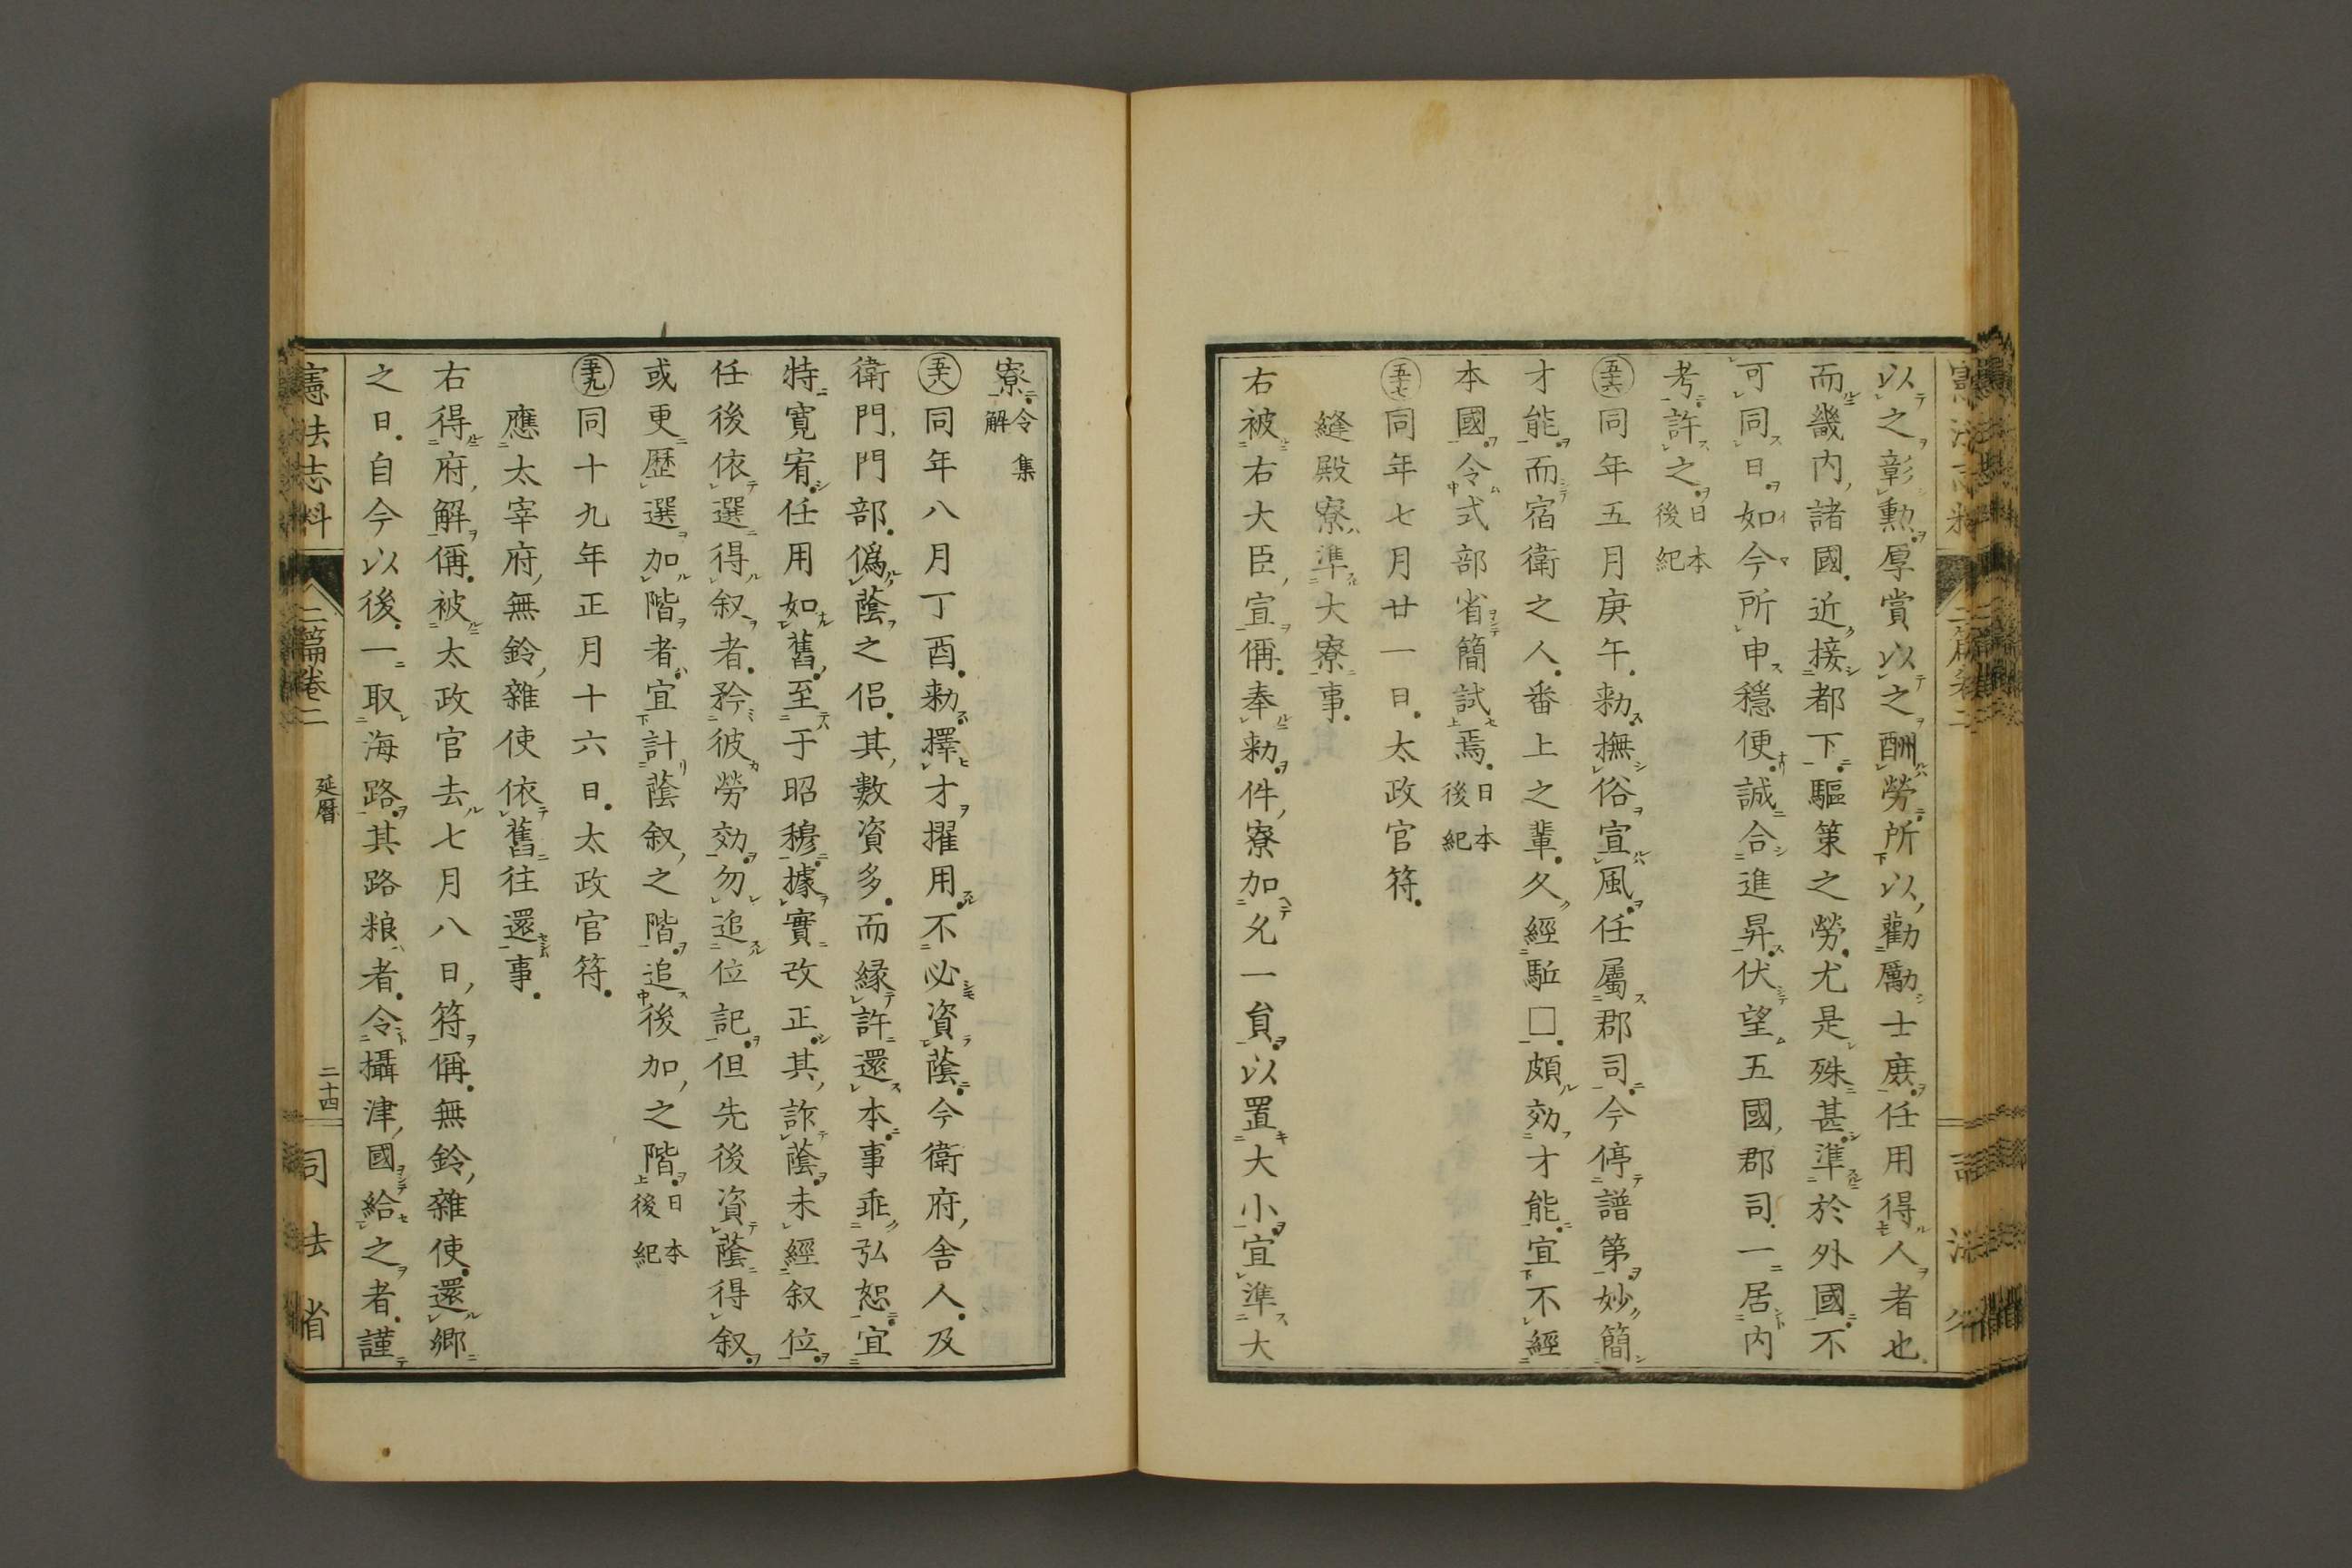 以之彰勲。厚賞以之酬勞。所以勸勵士庶。任用得人者也。
而畿内諸國。近接都下。驅策之勞。尤是殊甚。準於外國。不
可同日。如今所申穩便。誠合進昇。伏望五國郡司。一居内
考。許之。日本後紀
五十六 同年五月庚午。勅撫俗宣風。任屬郡司。今停譜第。妙簡
才能。而宿衛之人。番上之輩。久經駈□。頗効才能。宜不經
本國。令式部省簡試焉。日本後紀
五十七 同年七月廿一日。太政官符。
縫殿寮準大寮事。
右被右大臣宣偁。奉勅。件寮加允一員。以置大小。宜準大
寮。令集解
五十八 同年八月丁酉。勅擇才擢用。不必資蔭。今衛府舍人。及
衛門門部。僞蔭之侶。其數資多。而縁許還本。事乖弘恕。宜
特寛宥。任用如舊。至于昭穆。據實改正。其詐蔭未經叙位。
任後依選得叙者。矜彼勞効。勿追位記。但先後資蔭得叙。
或更歴選加階者。宜計蔭叙之階。追後加之階。日本後紀
五十九 同十九年正月十六日。太政官符。
應太宰府無鈴雜使依舊往還事。
右得府解偁。被太政官去七月八日符偁。無鈴雜使。還鄉
之日。自今以後。一取海路。其路粮者。令攝津國給之者。謹
憲法志料 二篇卷二 延暦 二十四 司法省